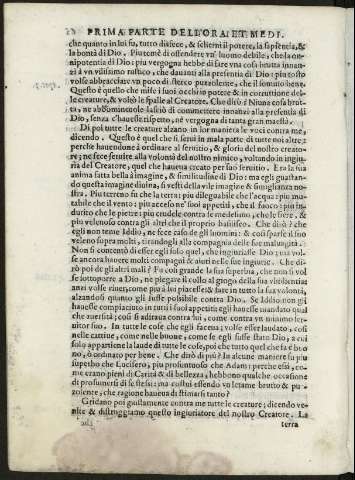 PRIMA PARTE DELL'ORA. ET MEDI.
che quanto in lui fu, tutto disfece, & schernì il potere, la sapienza, &
la bontà di Dio. Più temè di offendere vn'huomo debile, che la on-
nipotentia di Dio: più vergogna hebbe di fare vna cosa brutta innan-
zi à vn vilissimo rustico, che dauanti alla presentia di Dio: più tosto
volse abbracciare vn poco di sterco puzzolente, che il sommo bene.
Questo è quello che mise i suoi occhi in potere & in corruttione del-
le creature, & voltò le spalle al Creatore. Che dirò? Niuna cosa brut-
ta, ne abbomineuole lasciò di commettere innanzi alla presentia di
Dio, senza c'hauesse rispetto, nè vergogna di tanta gran maestà.
Di poi tutte le creature alzano in lor maniera le voci contra me,
dicendo. Questo è quel che si seruì in mala parte di tutte noi altre:
perche hauendone à ordinare al seruitio, & gloria del nostro creato-
re; ne fece seruire alla volontà del nostro nimico, voltando in ingiu-
ria del Creatore, quel che haueua creato per suo seruitio. Era la sua
anima fatta bella à imagine, & similitudine di Dio: ma egli guastan-
do questa imagine diuina, si vestì della vile imagine & simiglianza no
stra. Più terreno fu che la terra: più dileguabile che l'acqua: più mu-
tabile che il vento: più acceso ne' suoi appetiti, che il fuoco: più in-
durito che le pietre: più crudele contra se medesimo, che le fiere, &
più velenoso contra gli altri che il proprio basilisco. Che dirò? che
egli non teme Iddio, ne fece caso de gli huomini: & così sparse il suo
veleno sopra molti, tirandogli alla compagnia delle sue maluagità.
Non si contentò di esser egli solo quel, che ingiuriasse Dio; ma vol-
se ancora hauere molti compagni & aiuti nelle sue ingiurie. Che di-
rò poi de gli altri mali? Fu così grande la sua superbia, che non si vol
se sottoporre à Dio, nè piegare il collo al giogo della sua vbidientia:
anzi volse viuer, come più à lui piacesse, & fare in tutto la sua volontà,
alzandosi quanto gli fusse possibile contra Dio. Se Iddio non gli
hauesse compiaciuto in tutti i suoi appetiti egli hauesse mandato qual
che auersità; così si adiraua contra lui, come contra vn minimo ser-
uitor suo. In tutte le cose che egli faceua: volse esser laudato, così
nelle cattiue, come nelle buone, come se egli fusse stato Dio, a cui
solo appartiene la laude di tutte le cose, poi che tutto quel che fa è bo
no, ò ordinato per bene. Che dirò di più? In alcune maniere fu più
superbo che Lucifero, più prosuntuoso che Adam: perche essi, co-
me erano pieni di Carità & di bellezza, hebbono qualche occasione
di prosumersi di se stessi: ma costui essendo vn letame brutto & pu-
zolente, che ragione haueua di stimarsi tanto?
Gridano poi giustamente contra me tutte le creature; dicendo ve-
nite & distruggiamo questo ingiuriatore del nostro Creatore. La
terra